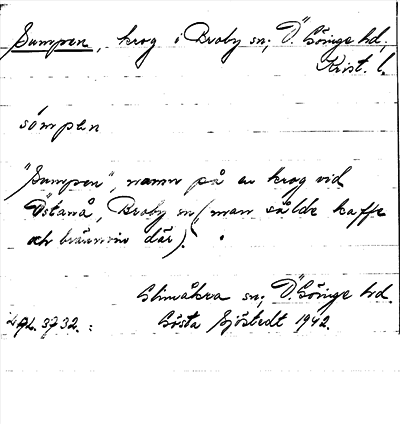 Sumpen, krog i Broby sn; Ö. Göinge hd,
Krist. l.
sómpen
"Sumpen", namn på en krog vid
Östanå, Broby sn (man sålde kaffe
och brännvin där).
Glimåkra sn; Ö. Göinge hd.
Gösta Sjöstedt 1942.
3732.: